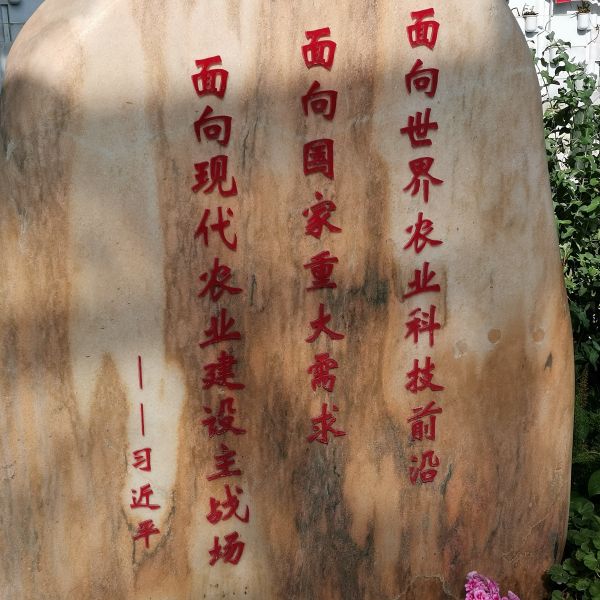 面向世界农业科技前沿
面向国家重大需求
面向现代农业建设主战场
——习近平